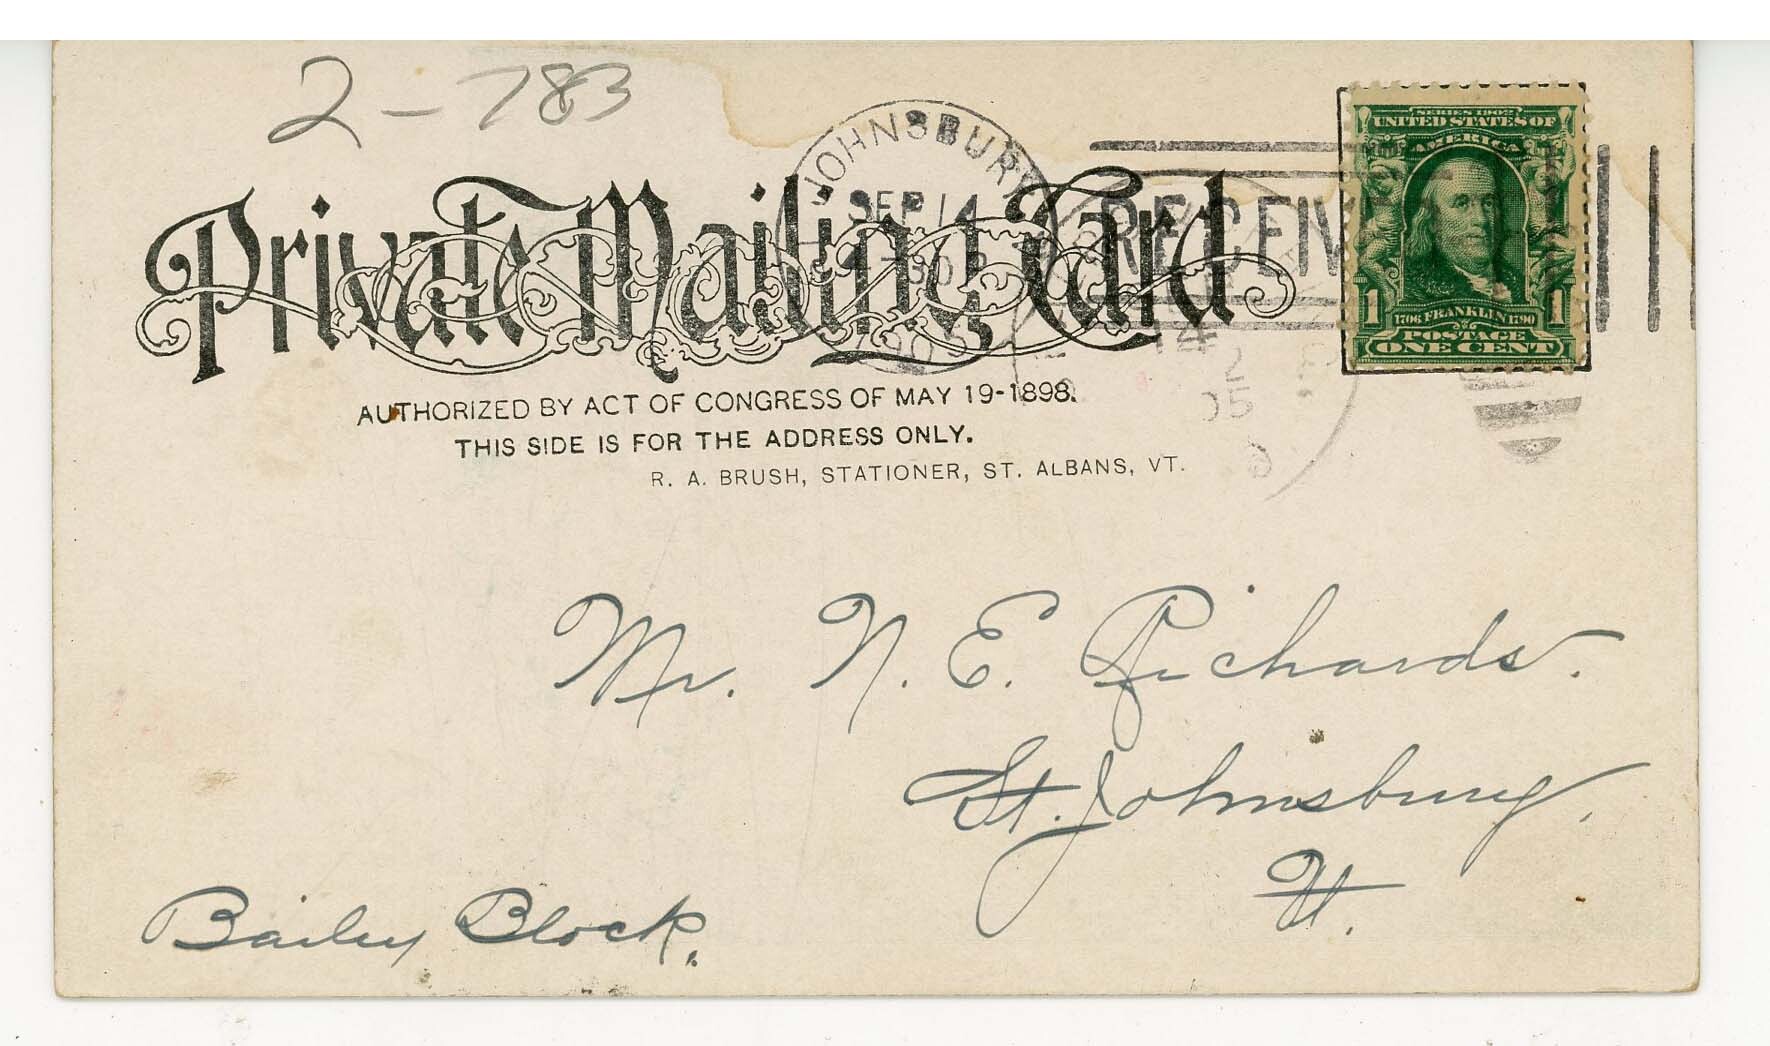 2-783
JOHNSBURY
SEP 14
1905
RECEIV
14
2
05
SERIES 1902
UNITED STATES OF
AMERICA
1 1
1706 FRANKLIN 1790
POSTAGE
ONE CENT
Private Mailing Card
AUTHORIZED BY ACT OF CONGRESS OF MAY 19-1898.
THIS SIDE IS FOR THE ADDRESS ONLY.
R. A. BRUSH, STATIONER, ST. ALBANS, VT.
Mr. N. E. Richards.
St. Johnsbury,
Vt.
Bailey Block.